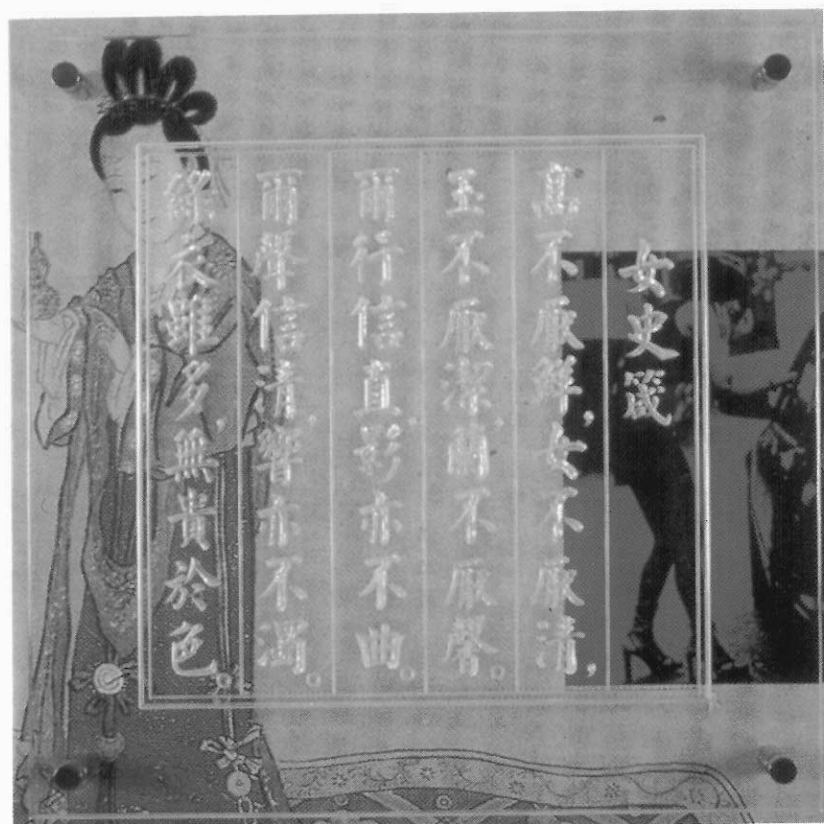 女史箴
不厭鮮,女不厭清,
玉不厭潔,蘭不厭馨。
爾行信直,影亦不曲。
爾聲信清,響亦不濁。
綠衣雖多,無貴於色。